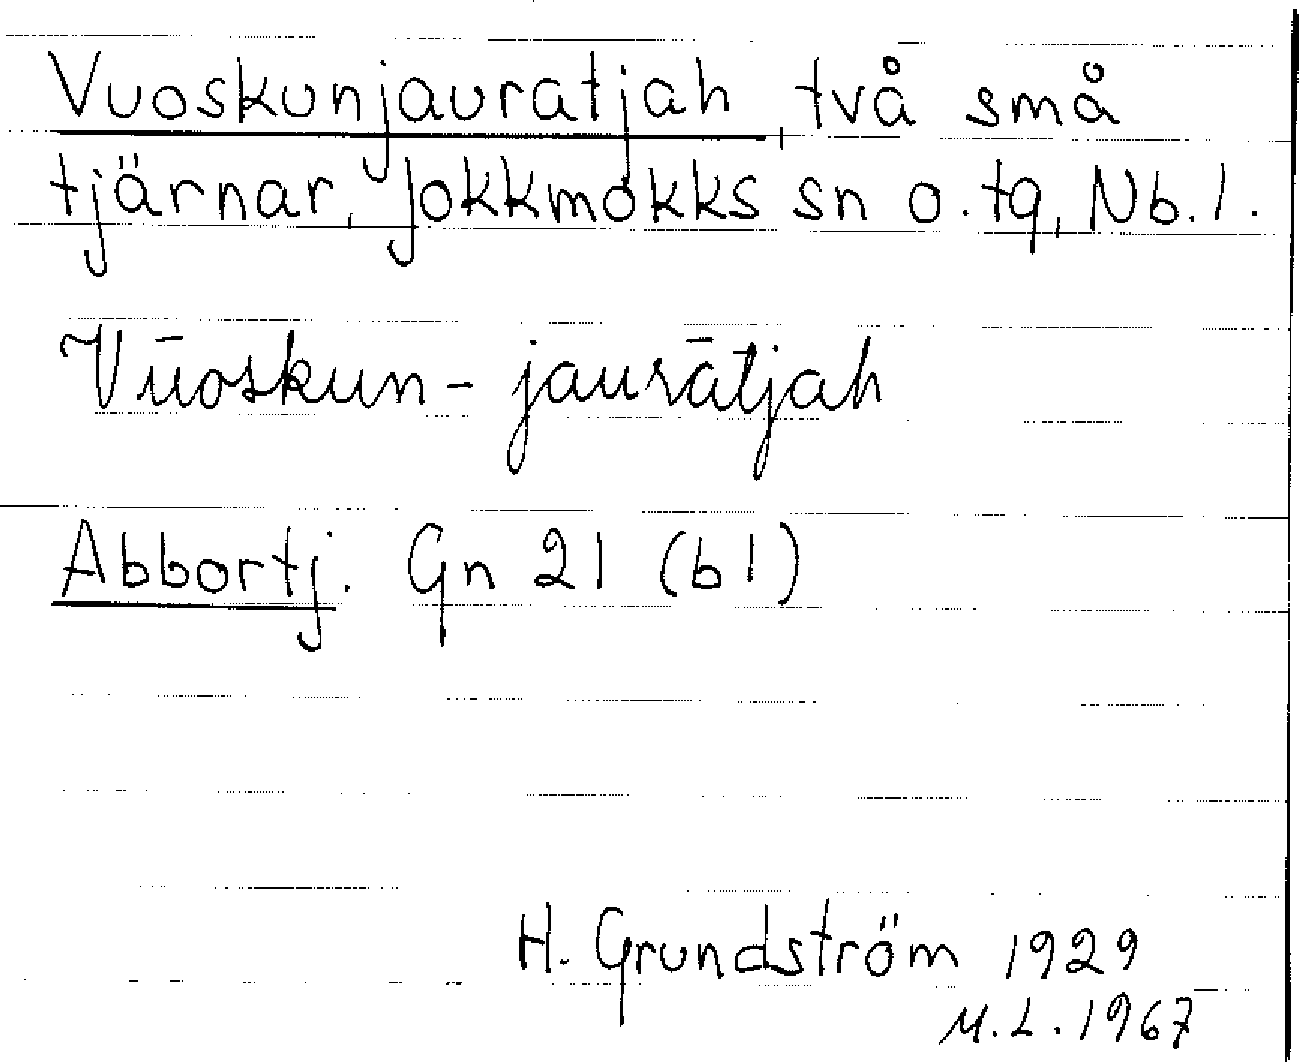 Vuoskunjauratjah, två små
tjärnar, Jokkmokks sn o. tg, Nb. l.
Vūoskun-jaurātjah
Abbortj. Gn 21 (b1)
H. Grundström 1929
M.L. 1967